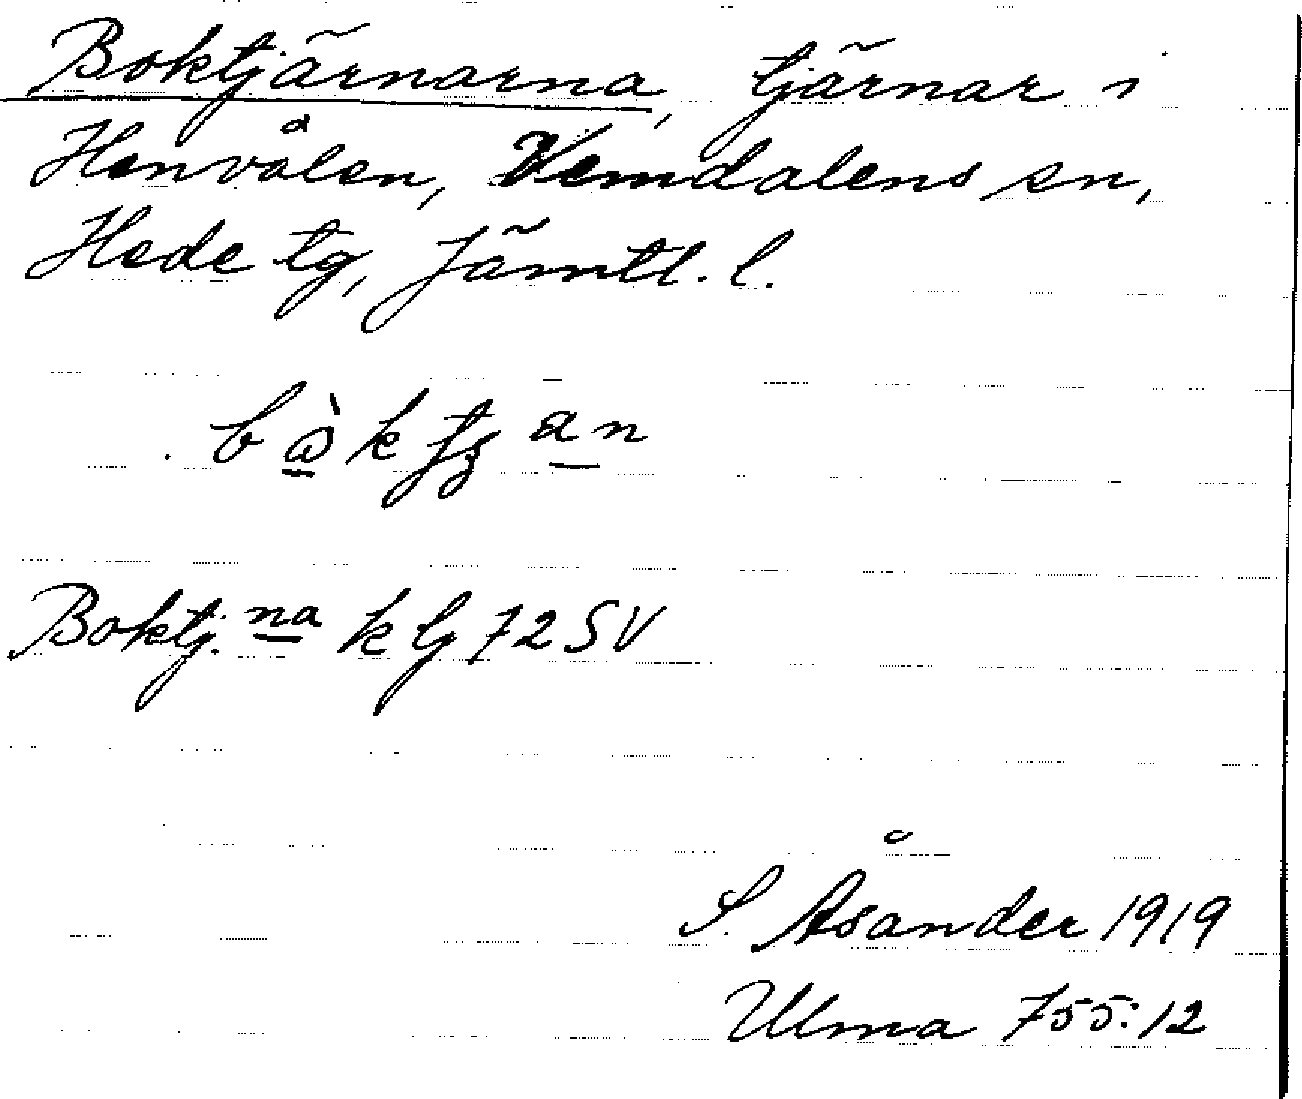 Boktjärnarna, tjärnar i
Henvålen, Vemdalens sn,
Hede tg, Jämtl. l.
Boktj. na k bj 72 SV
S. Åsander 1919
Ulma 755:12